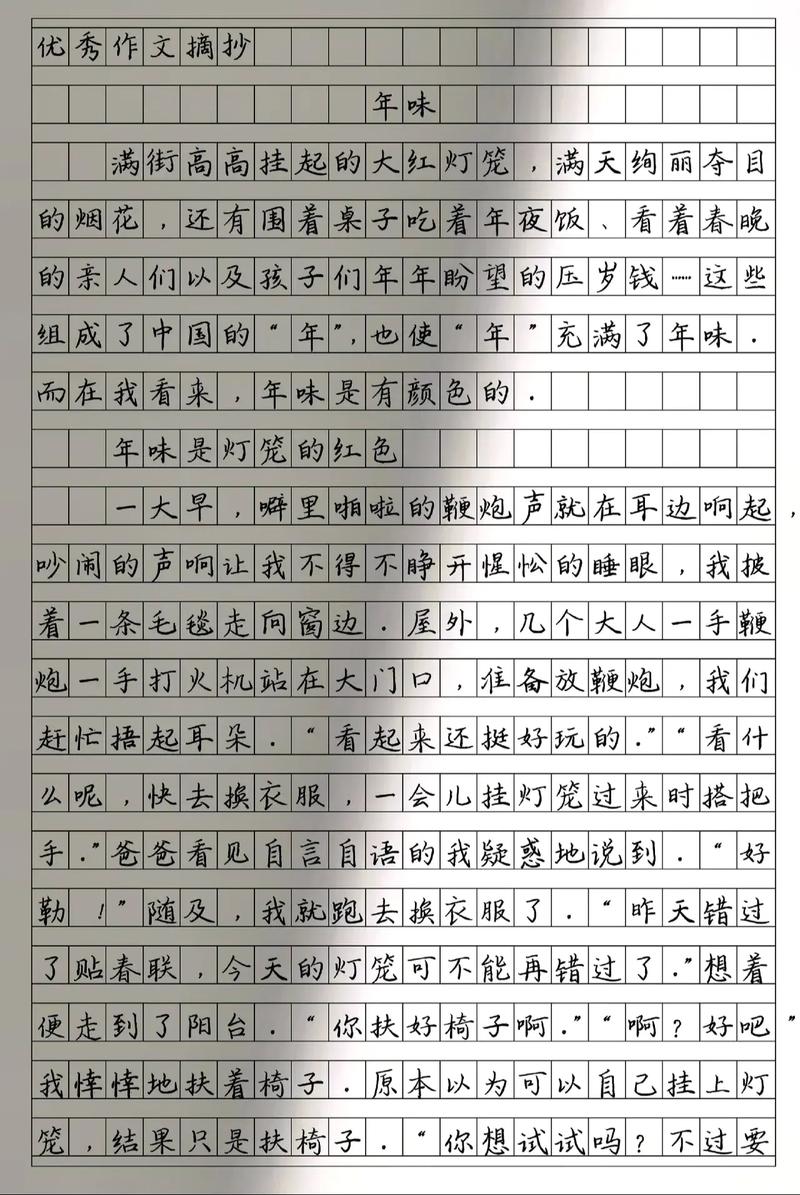 优秀作文摘抄
年味
满街高高挂起的大红灯笼，满天绚丽夺目
的烟花，还有围着桌子吃着年夜饭、看着春晚
的亲人们以及孩子们年年盼望的压岁钱……这些
组成了中国的“年”，也使“年”充满了年味.
而在我看来，年味是有颜色的.
年味是灯笼的红色
一大早，噼里啪啦的鞭炮声就在耳边响起，
吵闹的声响让我不得不睁开惺忪的睡眼，我披
着一条毛毯走向窗边.屋外，几个大人一手鞭
炮一手打火机站在大门口，准备放鞭炮，我们
赶忙捂起耳朵.“看起来还挺好玩的.”“看什
么呢，快去换衣服，一会儿挂灯笼过来时搭把
手.”爸爸看见自言自语的我疑惑地说到.“好
勒！”随及，我就跑去换衣服了.“昨天错过
了贴春联，今天的灯笼可不能再错过了.”想着
便走到了阳台.“你扶好椅子啊.”“啊？好吧”
我悻悻地扶着椅子.原本以为可以自己挂上灯
笼，结果只是扶椅子.“你想试试吗？不过要